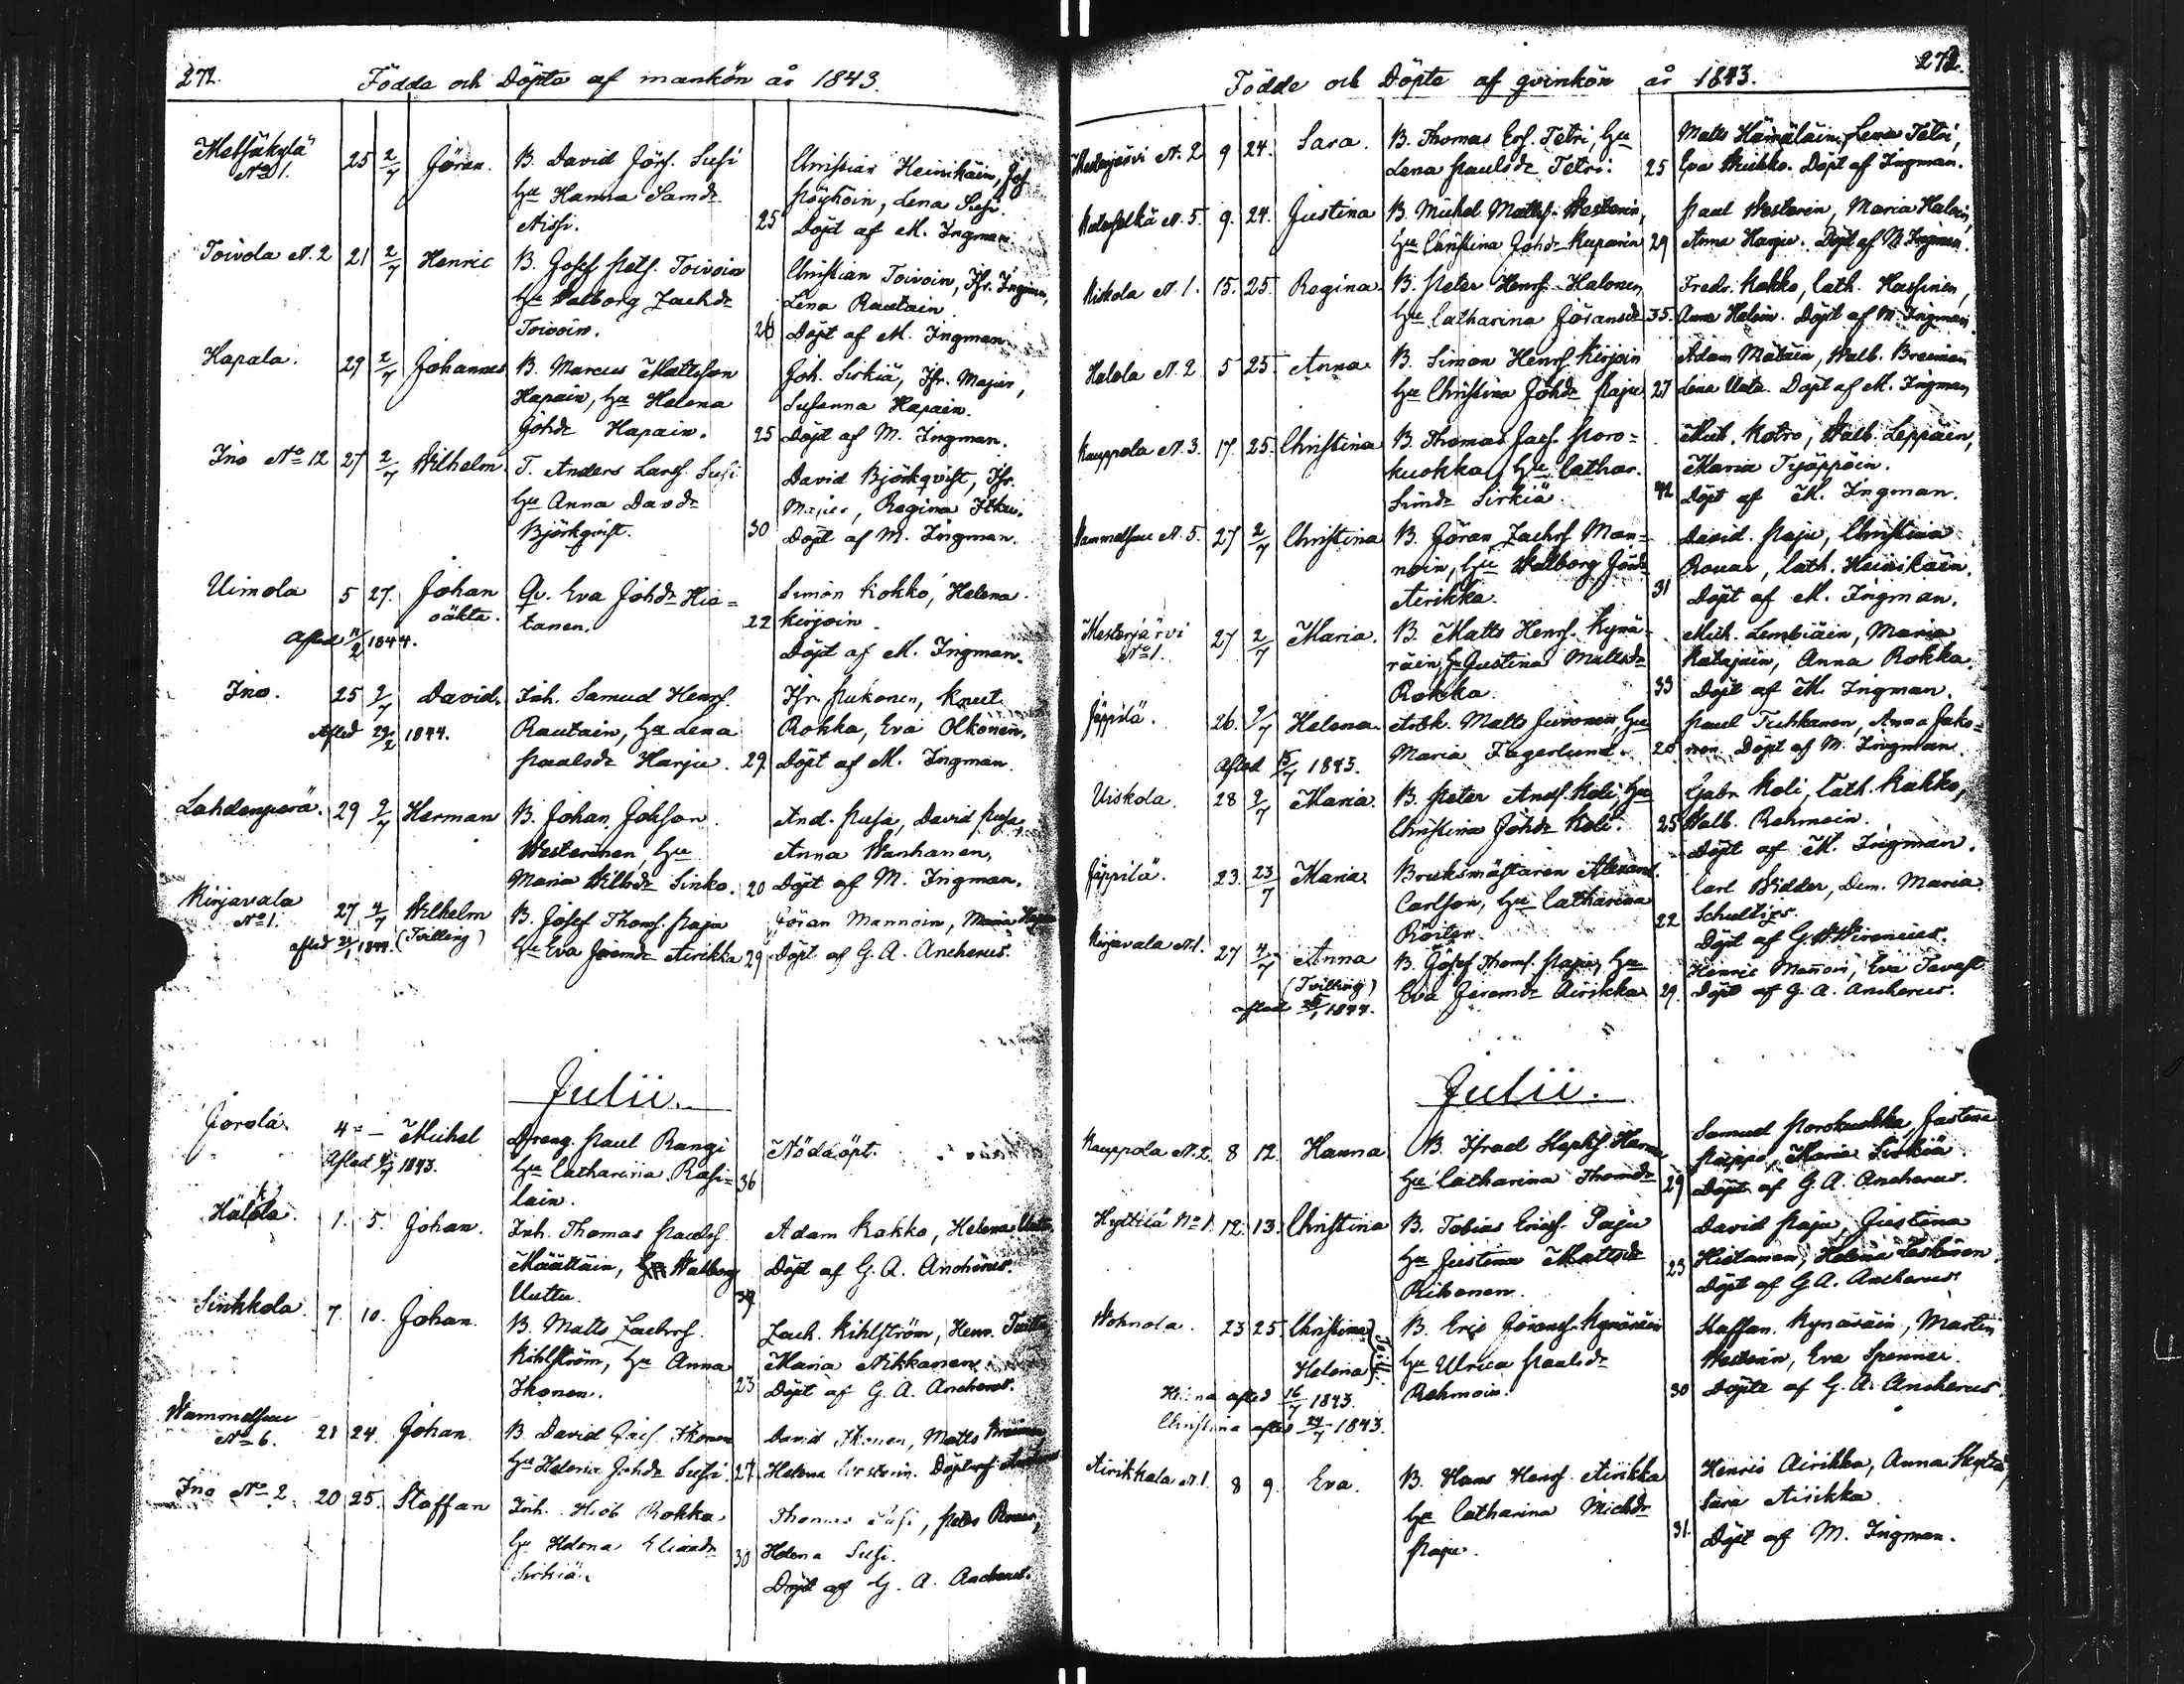 272.
Födde och Döpte af mankön år 1843.
Metsäkylä No 1. 25 2/7 Jöran. B. David Jörs. Susi Christian Heinikäin, Jos
Hu Hanna Samdr Pöyhöin, Lena Susi.
25 Döpt af M. Ingman.
Toivola N. 2 21 2/7 Henric B. Josef Pets. Toivoin Christian Toivoin, Ifr. Ingman,
Hu Valborg Zachdr Lena Rautain
Toivoin. 26 Döpt af M. Ingman
Hapala. 29 2/7 Johannes B. Marcus Mattsson Joh. Sirkiä, Ifr. Majur,
Hapain, Hu Helena Susanna Hapain.
Johdr Hapain. 25 Döpt af M. Ingman.
Ino No 12 27 2/7 Wilhelm. T. Anders Larss. Susi David Björkqvist, Ifr.
Hu Anna Davdr Regina
Björkqvist. 30 Döpt af M. Ingman.
Uimola 5 27. Johan Qv. Eva Johdr Hia= Simon Kokko, Helena
oäkta. tanen. 22 Kirjoin.
Afled 11/2 1844. Döpt af M. Ingman.
Ino. 25 9/7 David. Inh. Samuel Henrs. Ifr. Pukonen, Knut
Afled 29/2 1844. Rautain, Hu Lena Rokka, Eva Olkonen.
Paulsdr Harju. 29. Döpt af M. Ingman
Lahdenperä. 29 9/7 Herman B. Johan Johsson And. Pusa, David Pusa,
Westerinen Hu Anna Wanhanen,
Maria Willsdr Sinko. 20 Döpt af M. Ingman.
Kirjavala No 1. 27 4/7 Wilhelm B. Josef Thoms. Paju Göran Mannoin, Maria
(Tvilling) Hu Eva Jeremdr Airikka 29 Döpt af G. A. Ancherus.
Julii.
Jorola. 4 = — Michel Dreng. Paul Rangi Nöddöpt.
Afled 4/7 1843. Hu Catharina Rasi= 36
lain.
1. 5. Johan. Inh. Thomas Paulss. Adam Kakko, Helena Uutu
Määttäin, Hu Walborg Döpt af G. A. Ancherus.
Uuttu. 39
Sinkkola. 7. 10. Johan. B. Matts Zachrs. Zach. Kihlström, Henr.
Kihlström, Hu Anna Maria Nikkanen
Ikonen. 23 Döpt af G. A. Ancherus.
Wammelsuu No 6. 21 24. Johan. B. David Ikonen David Ikonen, Matts
Hu Helena Johdr Susi. 27. Helena Westerin. Döpt af
Ino No 2 20 25. Staffan Inh. Hiob Rokka Thomas Susi, Peter
Hu Helena Eliasdr 30 Helena Susi.
Sirkiä. Döpt af G. A. Ancherus.
272.
Födde och Döpte af qvinkön år 1843.
N. 2 9 24. Sara. B. Thomas Ers. Tetri, Hu Matts Hämäläin, Lena Tetri,
Lena Paulsdr Tetri. 25 Döpt af Ingman.
N. 5 9. 24. Justina B. Michel Matts. Westerin, Paul Westerin, Maria
Hu Christina Johdr Kuparin 29 Anna Harju. Döpt af M. Ingman.
N. 1. 15. 25. Regina. B. Peter Henrs. Halonen Fredr. Kokko, Cath. Hassinen,
Hu Catharina Göransdr 35. Anna Haloin. Döpt af M. Ingman.
N. 2 5 25. Anna B. Simon Henrs. Kirjoin Adam Mätäin, Walb.
Hu Christina Johdr Paju 27 Lena Uuttu. Döpt af M. Ingman
Kauppola N. 3. 17. 25. Christina B. Thomas Jacs. Poro= Mich. Kotro, Walb. Leppäin,
kuokka, Hu Cathar. Maria Tyäppöin.
Simdr Sirkiä. 42 Döpt af M. Ingman.
Wammelsuu N. 5. 27 2/7 Christina B. Göran Zachrs. Man= David Paju, Christina
noin, Hu Walborg Cath. Heinikäin.
Airikka. 31 Döpt af M. Ingman.
Mesterjärvi No 1. 27 2/7 Maria. B. Matts Henrs. Kynä= Mich. Lembiäin, Maria
räin, Hu Justina Mattsdr Katajain, Anna Rokka.
Rokka. 33 Döpt af M. Ingman.
Jäppilä. 26. 9/7 Helena Matts Juvonen Hu Paul Tuhkanen, Anna Juho=
Afled 15/7 1843. Maria Fagerlund. 20 nen. Döpt af M. Ingman.
Uiskola. 28 9/7 Maria. B. Peter Ands. Koli, Hu Gabr. Koli, Cath. Kakko,
Christina Johdr Koli. 25 Walb. Rehmoin.
Döpt af M. Ingman.
Jäppilä. 23. 23/7 Maria Bruksmästaren Alexand. Carl Widder, Dem. Maria
Carlson, Hu Catharina 22 Schultzes.
Röiter. Döpt af G. W. Wirenius.
Kirjavala N. 1. 27 4/7 Anna B. Josef Thoms. Paju, Hu Henric Mannoin, Eva Tavast
(Tvilling) Eva Jeremdr Airikka 29. Döpt af G. A. Ancherus.
afled 1844.
Julii.
Kauppola N. 2. 8 12. Hanna B. Israel Samuel Porokuokka, Justina
Hu Catharina Thomdr Pappo, Maria Sirkiä
29 Döpt af G. A. Ancherus.
Hyttilä No 1. 12. 13. Christina B. Tobias Paju David Paju, Justina
Hu Justina Mattsdr 23 Hietanen, Helena Leskinen.
Rikonen. Döpt af G A. Ancherus.
23 25 Christina B. Eric Görans. Kynäräin Staffan Kynäräin, Martin
Helena Tvill. Hu Ulrica Paulsdr Westerin, Eva Spennar.
afled 16/7 1843. Rehmoin. 30 Döpte af G. A. Ancherus
Christina afled 24/7 1843.
Airikkala N. 1. 8 9. Eva. B. Hans Henrs. Airikka Henric Airikka, Anna Skyttä,
Hu Catharina Michdr Sara Airikka
Paju. 31. Döpt af M. Ingman.